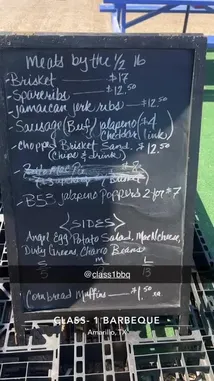 Meats by the 1/2 lb
-Brisket $17
-Spareribs $12.50
-Jamaican jerk ribs $12.50
-Sausage (Beef/Jalapeño $4
& cheddar link)
-Chopped Brisket Sand. $12.50
(Chips & drink)
-B53 Jalapeño Poppers 2 for $7
<SIDES>
Angel Egg Potato Salad, Mac N cheese,
Dirty Greens, Charro Beans
S M L
@class1bbq
Cornbread Muffins $1.50 ea.
CLASS- 1 BARBEQUE
Amarillo, TX